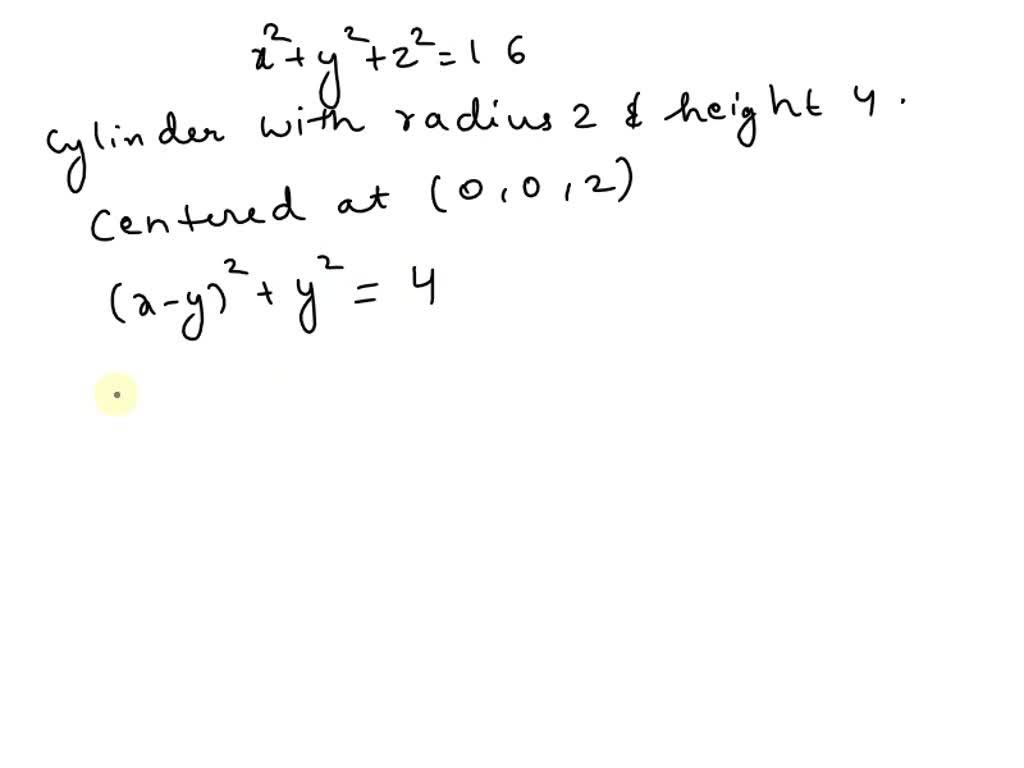 x²+y²+z²=16
cylinder with radius 2 & height 4.
Centered at (0,0,2)
(x-y)²+y²=4